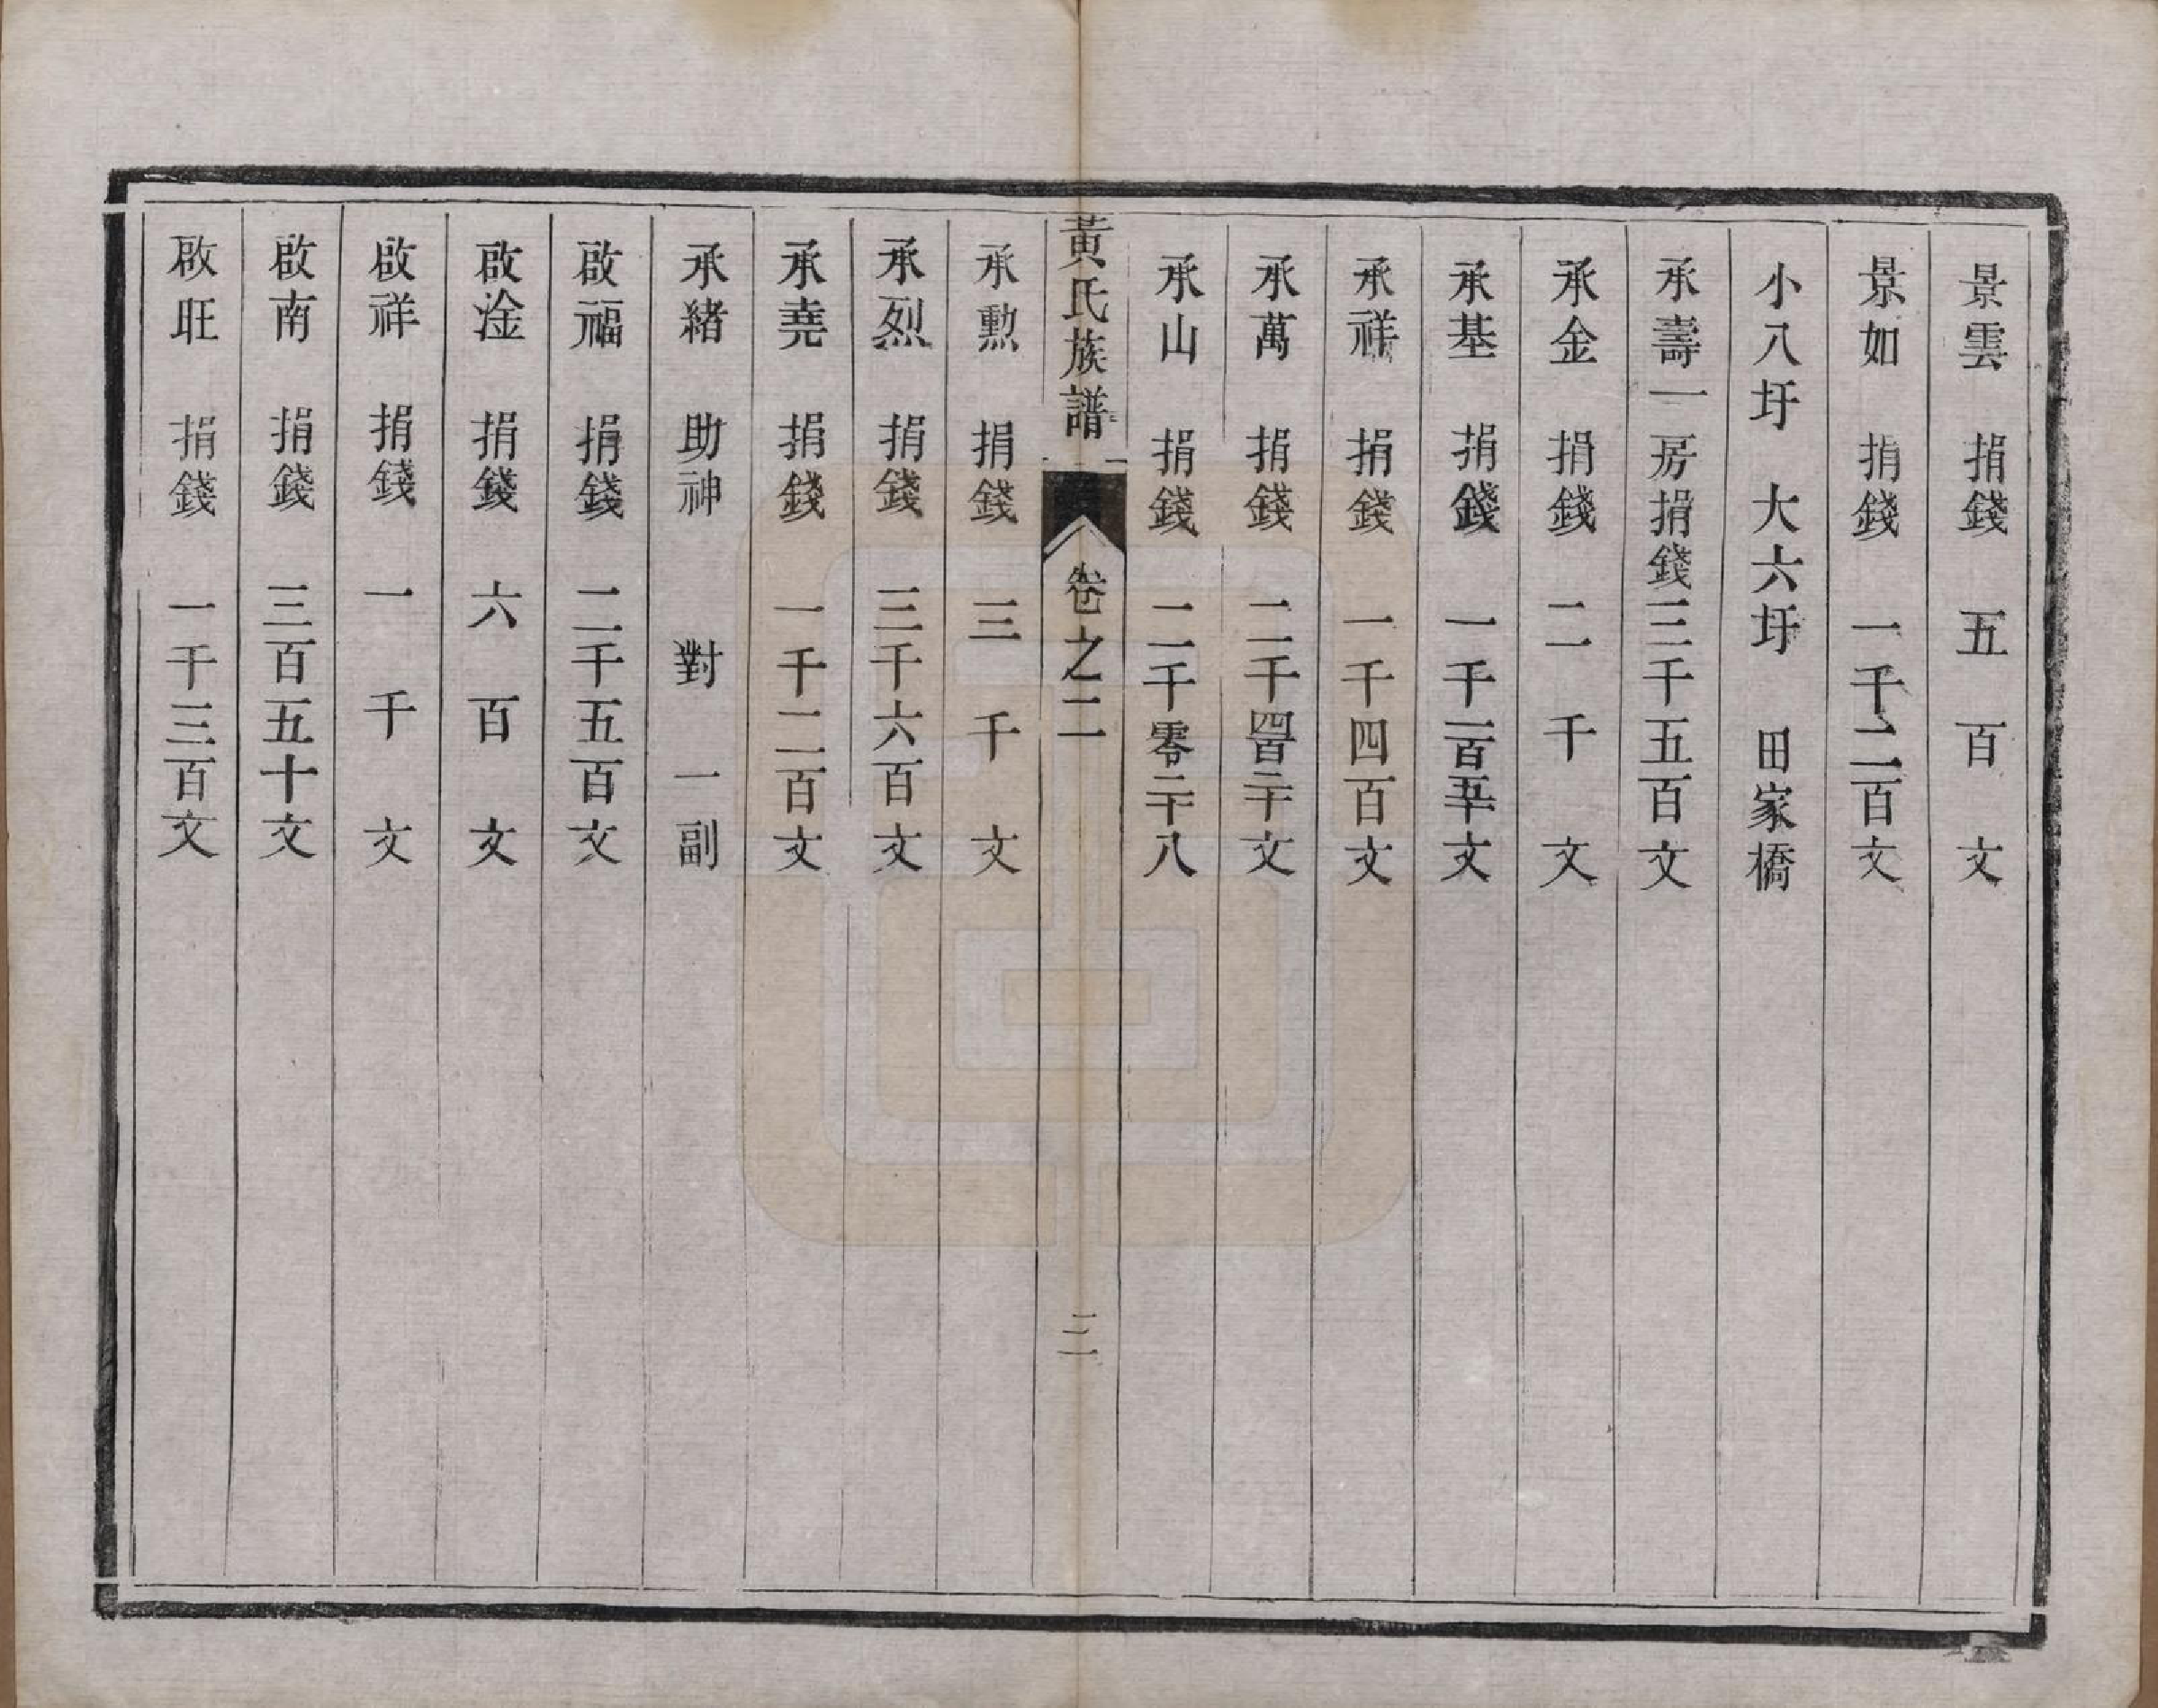 景雲　捐錢　五百文
景如　捐錢　一千二百文
小八圩　大六圩　田家橋
承壽一房捐錢三千五百文
承金　捐錢　二千文
承基　捐錢　一千一百五十文
承祥　捐錢　一千四百文
承萬　捐錢　二千四百二十文
承山　捐錢　二千零二十八
黃氏族譜　卷之二　三
承勲　捐錢　三千文
承烈　捐錢　三千六百文
承堯　捐錢　一千二百文
承緒　助神　對　一副
啟福　捐錢　二千五百文
啟淦　捐錢　六百文
啟祥　捐錢　一千文
啟南　捐錢　三百五十文
啟旺　捐錢　一千三百文